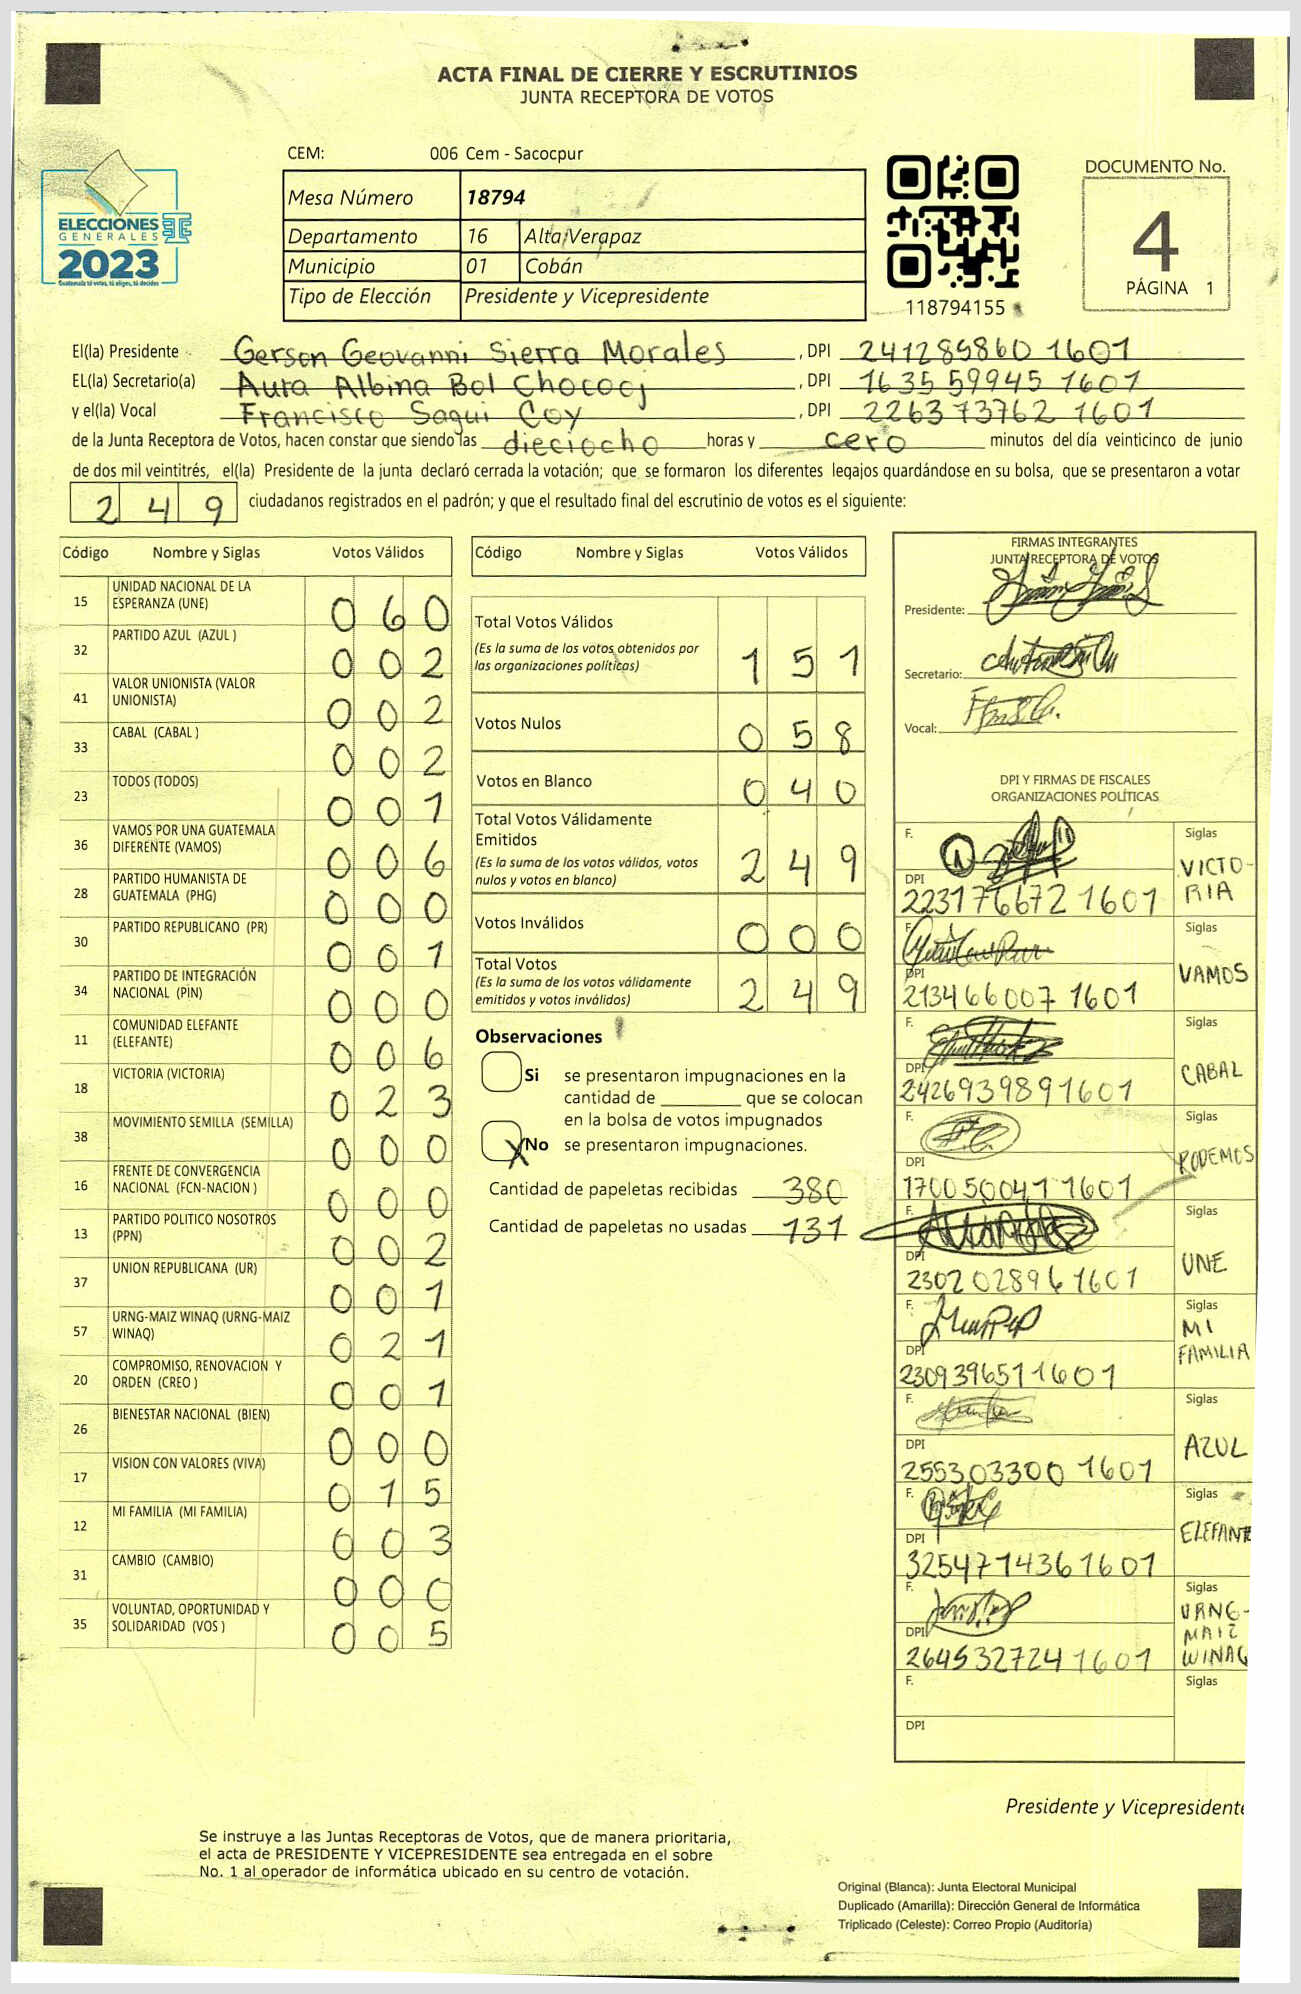 ACTA FINAL DE CIERRE Y ESCRUTINIOS
JUNTA RECEPTORA DE VOTOS
CEM: 006 Cem - Sacocpur
Mesa Número 18794
Departamento 16 Alta Verapaz
Municipio 01 Cobán
Tipo de Elección Presidente y Vicepresidente
ELECCIONES
GENERALES
2023
118794155
DOCUMENTO No.
4
PÁGINA 1
El(la) Presidente Gerson Geovanni Sierra Morales, DPI 241289860 1601
EL(la) Secretario(a) Aura Albina Bol Chocooj, DPI 1635 59945 1601
y el(la) Vocal Francisco Saqui Coy, DPI 2263 73762 1601
de la Junta Receptora de Votos, hacen constar que siendo las dieciocho horas y cero minutos del día veinticinco de junio
de dos mil veintitrés, el(la) Presidente de la junta declaró cerrada la votación; que se formaron los diferentes legajos guardándose en su bolsa, que se presentaron a votar
249 ciudadanos registrados en el padrón; y que el resultado final del escrutinio de votos es el siguiente:
Código Nombre y Siglas Votos Válidos
15 UNIDAD NACIONAL DE LA ESPERANZA (UNE) 060
32 PARTIDO AZUL (AZUL ) 002
41 VALOR UNIONISTA (VALOR UNIONISTA) 002
33 CABAL (CABAL ) 002
23 TODOS (TODOS) 001
36 VAMOS POR UNA GUATEMALA DIFERENTE (VAMOS) 006
28 PARTIDO HUMANISTA DE GUATEMALA (PHG) 000
30 PARTIDO REPUBLICANO (PR) 001
34 PARTIDO DE INTEGRACIÓN NACIONAL (PIN) 000
11 COMUNIDAD ELEFANTE (ELEFANTE) 006
18 VICTORIA (VICTORIA) 023
38 MOVIMIENTO SEMILLA (SEMILLA) 000
16 FRENTE DE CONVERGENCIA NACIONAL (FCN-NACION ) 000
13 PARTIDO POLITICO NOSOTROS (PPN) 002
37 UNION REPUBLICANA (UR) 001
57 URNG-MAIZ WINAQ (URNG-MAIZ WINAQ) 021
20 COMPROMISO, RENOVACION Y ORDEN (CREO ) 001
26 BIENESTAR NACIONAL (BIEN) 000
17 VISION CON VALORES (VIVA) 015
12 MI FAMILIA (MI FAMILIA) 003
31 CAMBIO (CAMBIO) 000
35 VOLUNTAD, OPORTUNIDAD Y SOLIDARIDAD (VOS ) 005
Código Nombre y Siglas Votos Válidos
Total Votos Válidos 151
(Es la suma de los votos obtenidos por
las organizaciones políticas)
Votos Nulos 058
Votos en Blanco 040
Total Votos Válidamente
Emitidos 249
(Es la suma de los votos válidos, votos
nulos y votos en blanco)
Votos Inválidos 000
Total Votos 249
(Es la suma de los votos válidamente
emitidos y votos inválidos)
Observaciones
Si se presentaron impugnaciones en la
cantidad de ________ que se colocan
en la bolsa de votos impugnados
X No se presentaron impugnaciones.
Cantidad de papeletas recibidas 380
Cantidad de papeletas no usadas 131
FIRMAS INTEGRANTES
JUNTA RECEPTORA DE VOTOS
Presidente:
Secretario:
Vocal:
DPI Y FIRMAS DE FISCALES
ORGANIZACIONES POLÍTICAS
F. Siglas VICTORIA
DPI 223176672 1601
F. Siglas VAMOS
DPI 213466007 1601
F. Siglas CABAL
DPI 2426939891601
F. Siglas PODEMOS
DPI 170050041 1601
F. Siglas UNE
DPI 230202896 1601
F. Siglas MI FAMILIA
DPI 2309396511601
F. Siglas AZUL
DPI 255303300 1601
F. Siglas ELEFANTE
DPI 3254714361601
F. Siglas URNG-MAIZ WINAQ
DPI 264532724 1601
F. Siglas
DPI
Presidente y Vicepresidente
Se instruye a las Juntas Receptoras de Votos, que de manera prioritaria,
el acta de PRESIDENTE Y VICEPRESIDENTE sea entregada en el sobre
No. 1 al operador de informática ubicado en su centro de votación.
Original (Blanca): Junta Electoral Municipal
Duplicado (Amarilla): Dirección General de Informática
Triplicado (Celeste): Correo Propio (Auditoría)